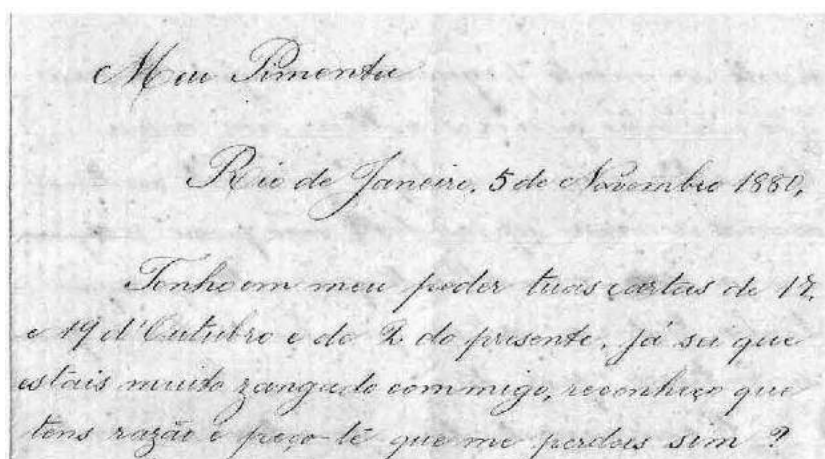 Meu Pimenta
Rio de Janeiro, 5 de Novembro 1880,
Tenho em meu poder tuas cartas de 17,
e 19 d'Outubro e do 2 do presente. Já sei que
estais muito zangado commigo, reconheço que
tens razão e peço-te que me perdois sim?